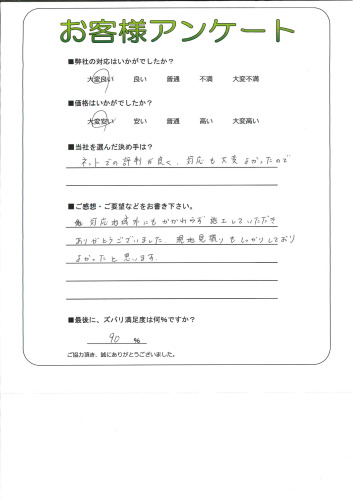 お客様アンケート
■弊社の対応はいかがでしたか?
大変良い 良い 普通 不満 大変不満
■価格はいかがでしたか?
大変安い 安い 普通 高い 大変高い
■当社を選んだ決め手は?
ネットでの評判が良く、対応も大変よかったので
■ご感想・ご要望などをお書き下さい。
対応地域外にもかかわらず施工していただき
ありがとうございました。現地見積りもしっかりしており
よかったと思います。
■最後に、ズバリ満足度は何%ですか?
90 %
ご協力頂き、誠にありがとうございました。